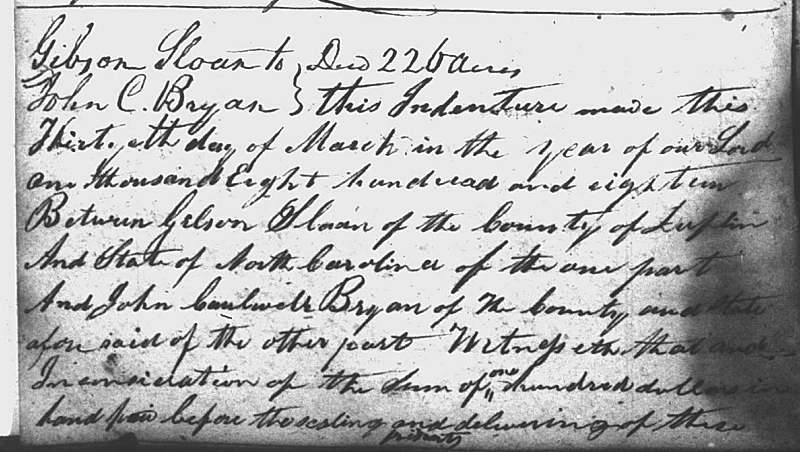 Gibson Sloan to } Deed 226 Acres
John C. Bryan } this Indenture made this
Thirtyeth day of March in the year of our Lord
one thousand Eight hundread and eighteen
Between Gibson Sloan of the County of Duplin
And State of North Carolina of the one part
And John Caulwell Bryan of the County and State
afore said of the other part Witnesseth that and
In consieration of the sum of one hundred dollars in
hand paid before the sealing and delivering of these
presents